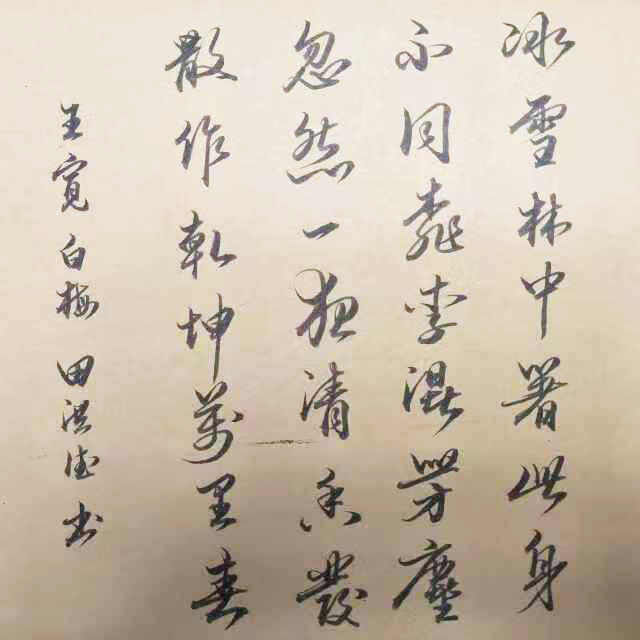 冰雪林中署此身
不同桃李混芳塵
忽然一夜清香發
散作乾坤萬里春
王寬白梅 田洪法書